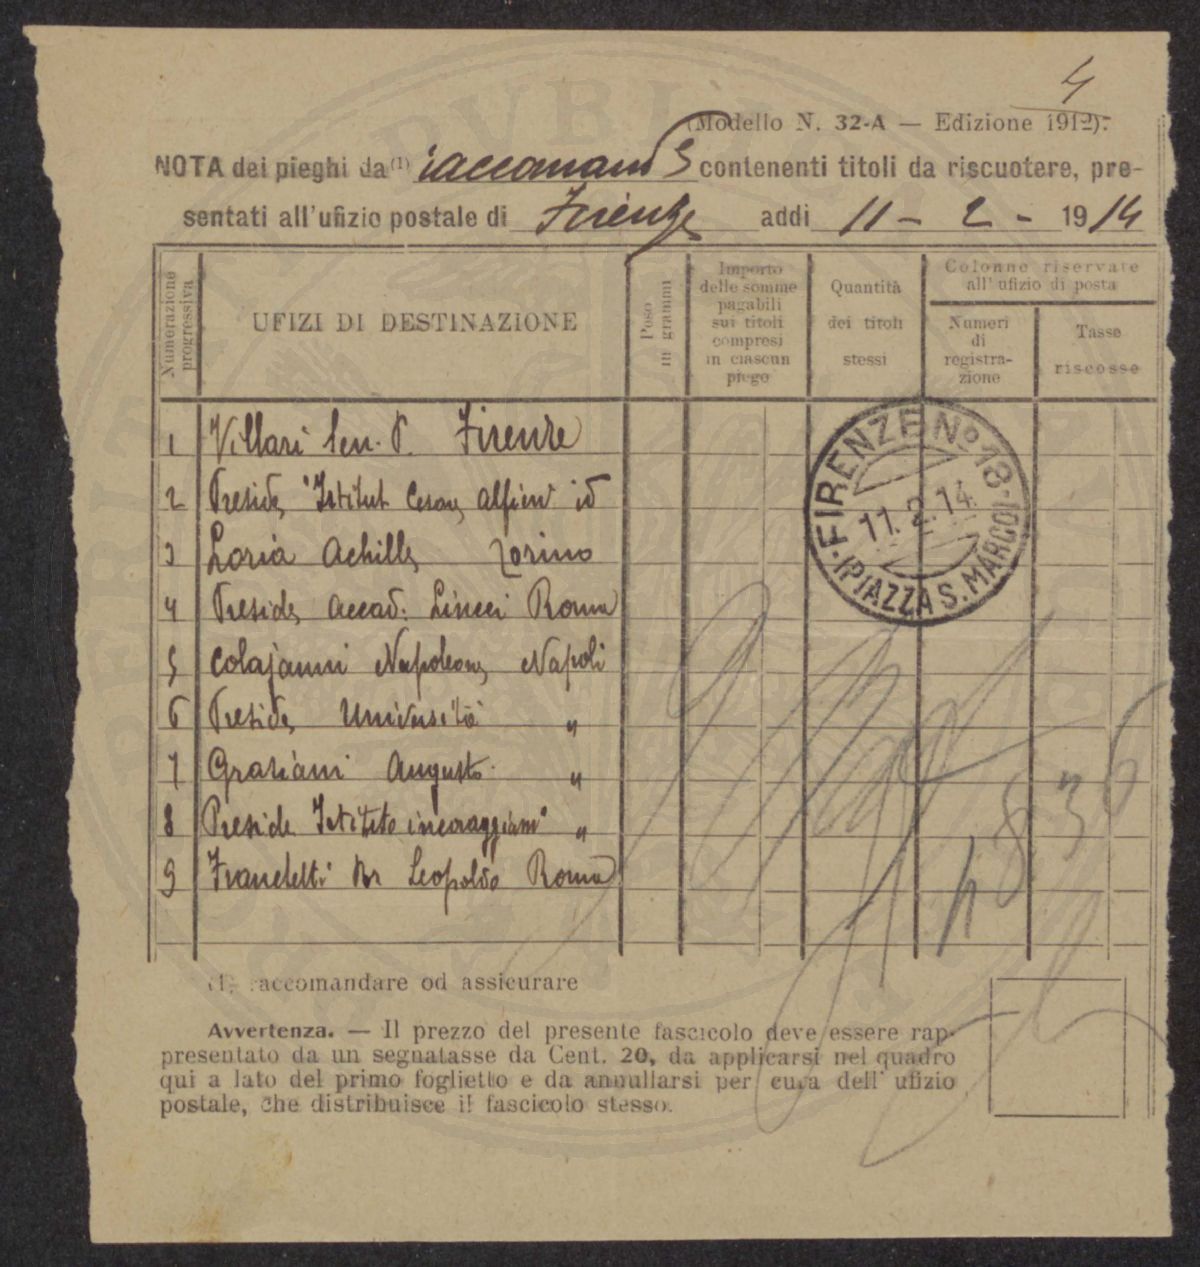 4
(Modello N. 32-A — Edizione 1912).
NOTA dei pieghi da (1) raccomand contenenti titoli da riscuotere, pre-
sentati all'ufizio postale di Firenze addì 11 - 2 - 1914
Numerazione progressiva
UFIZI DI DESTINAZIONE
Peso in grammi
Importo delle somme pagabili sui titoli compresi in ciascun piego
Quantità dei titoli stessi
Colonne riservate all'ufizio di posta
Numeri di registrazione
Tasse riscosse
1 Villari Sen. P. Firenze
2 Preside Istitut Cesare Alfieri id
3 Loria Achille Torino
4 Preside Accad. Lincei Roma
5 Colajanni Napoleone Napoli
6 Preside Università "
7 Graziani Augusto "
8 Preside Istituto incoraggiam "
9 Franchetti Bar Leopoldo Roma
FIRENZE No 18
11.2.14
(PIAZZA S. MARCO)
(1) raccomandare od assicurare
Avvertenza. — Il prezzo del presente fascicolo deve essere rap-
presentato da un segnatasse da Cent. 20, da applicarsi nel quadro
qui a lato del primo foglietto e da annullarsi per cura dell'ufizio
postale, che distribuisce il fascicolo stesso.